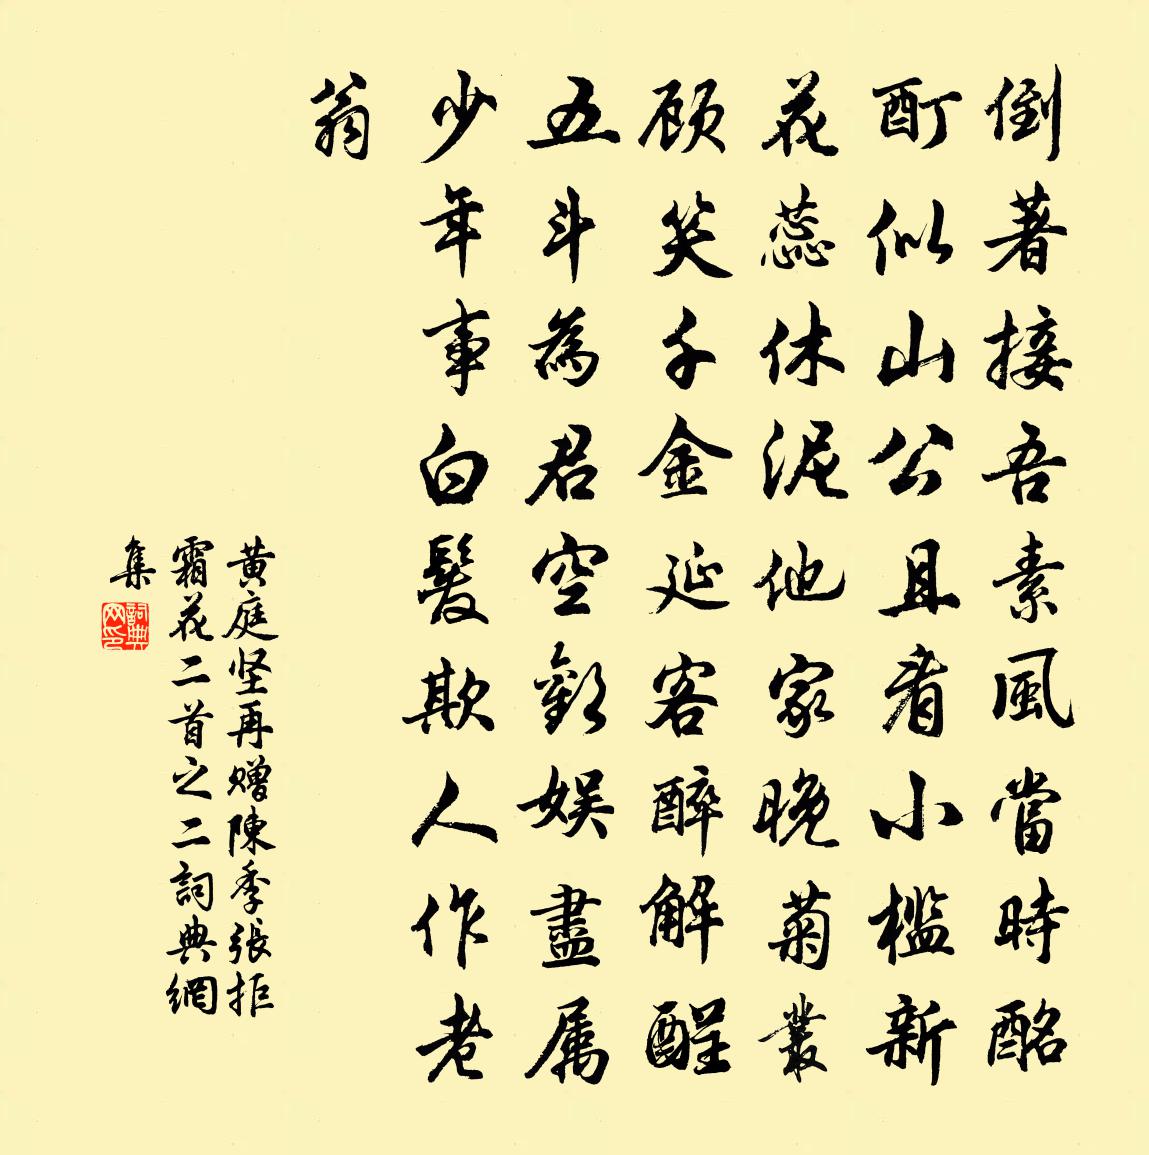 倒著接吾素風當時酩
酊似山公且看小檻新
花蕊休泥他家晚菊叢
顾笑千金延客醉解酲
五斗為君空歡娱盡属
少年事白髮欺人作老
翁
黄庭坚再赠陳季張拒
霜花二首之二詞典網
集
詞典
网印